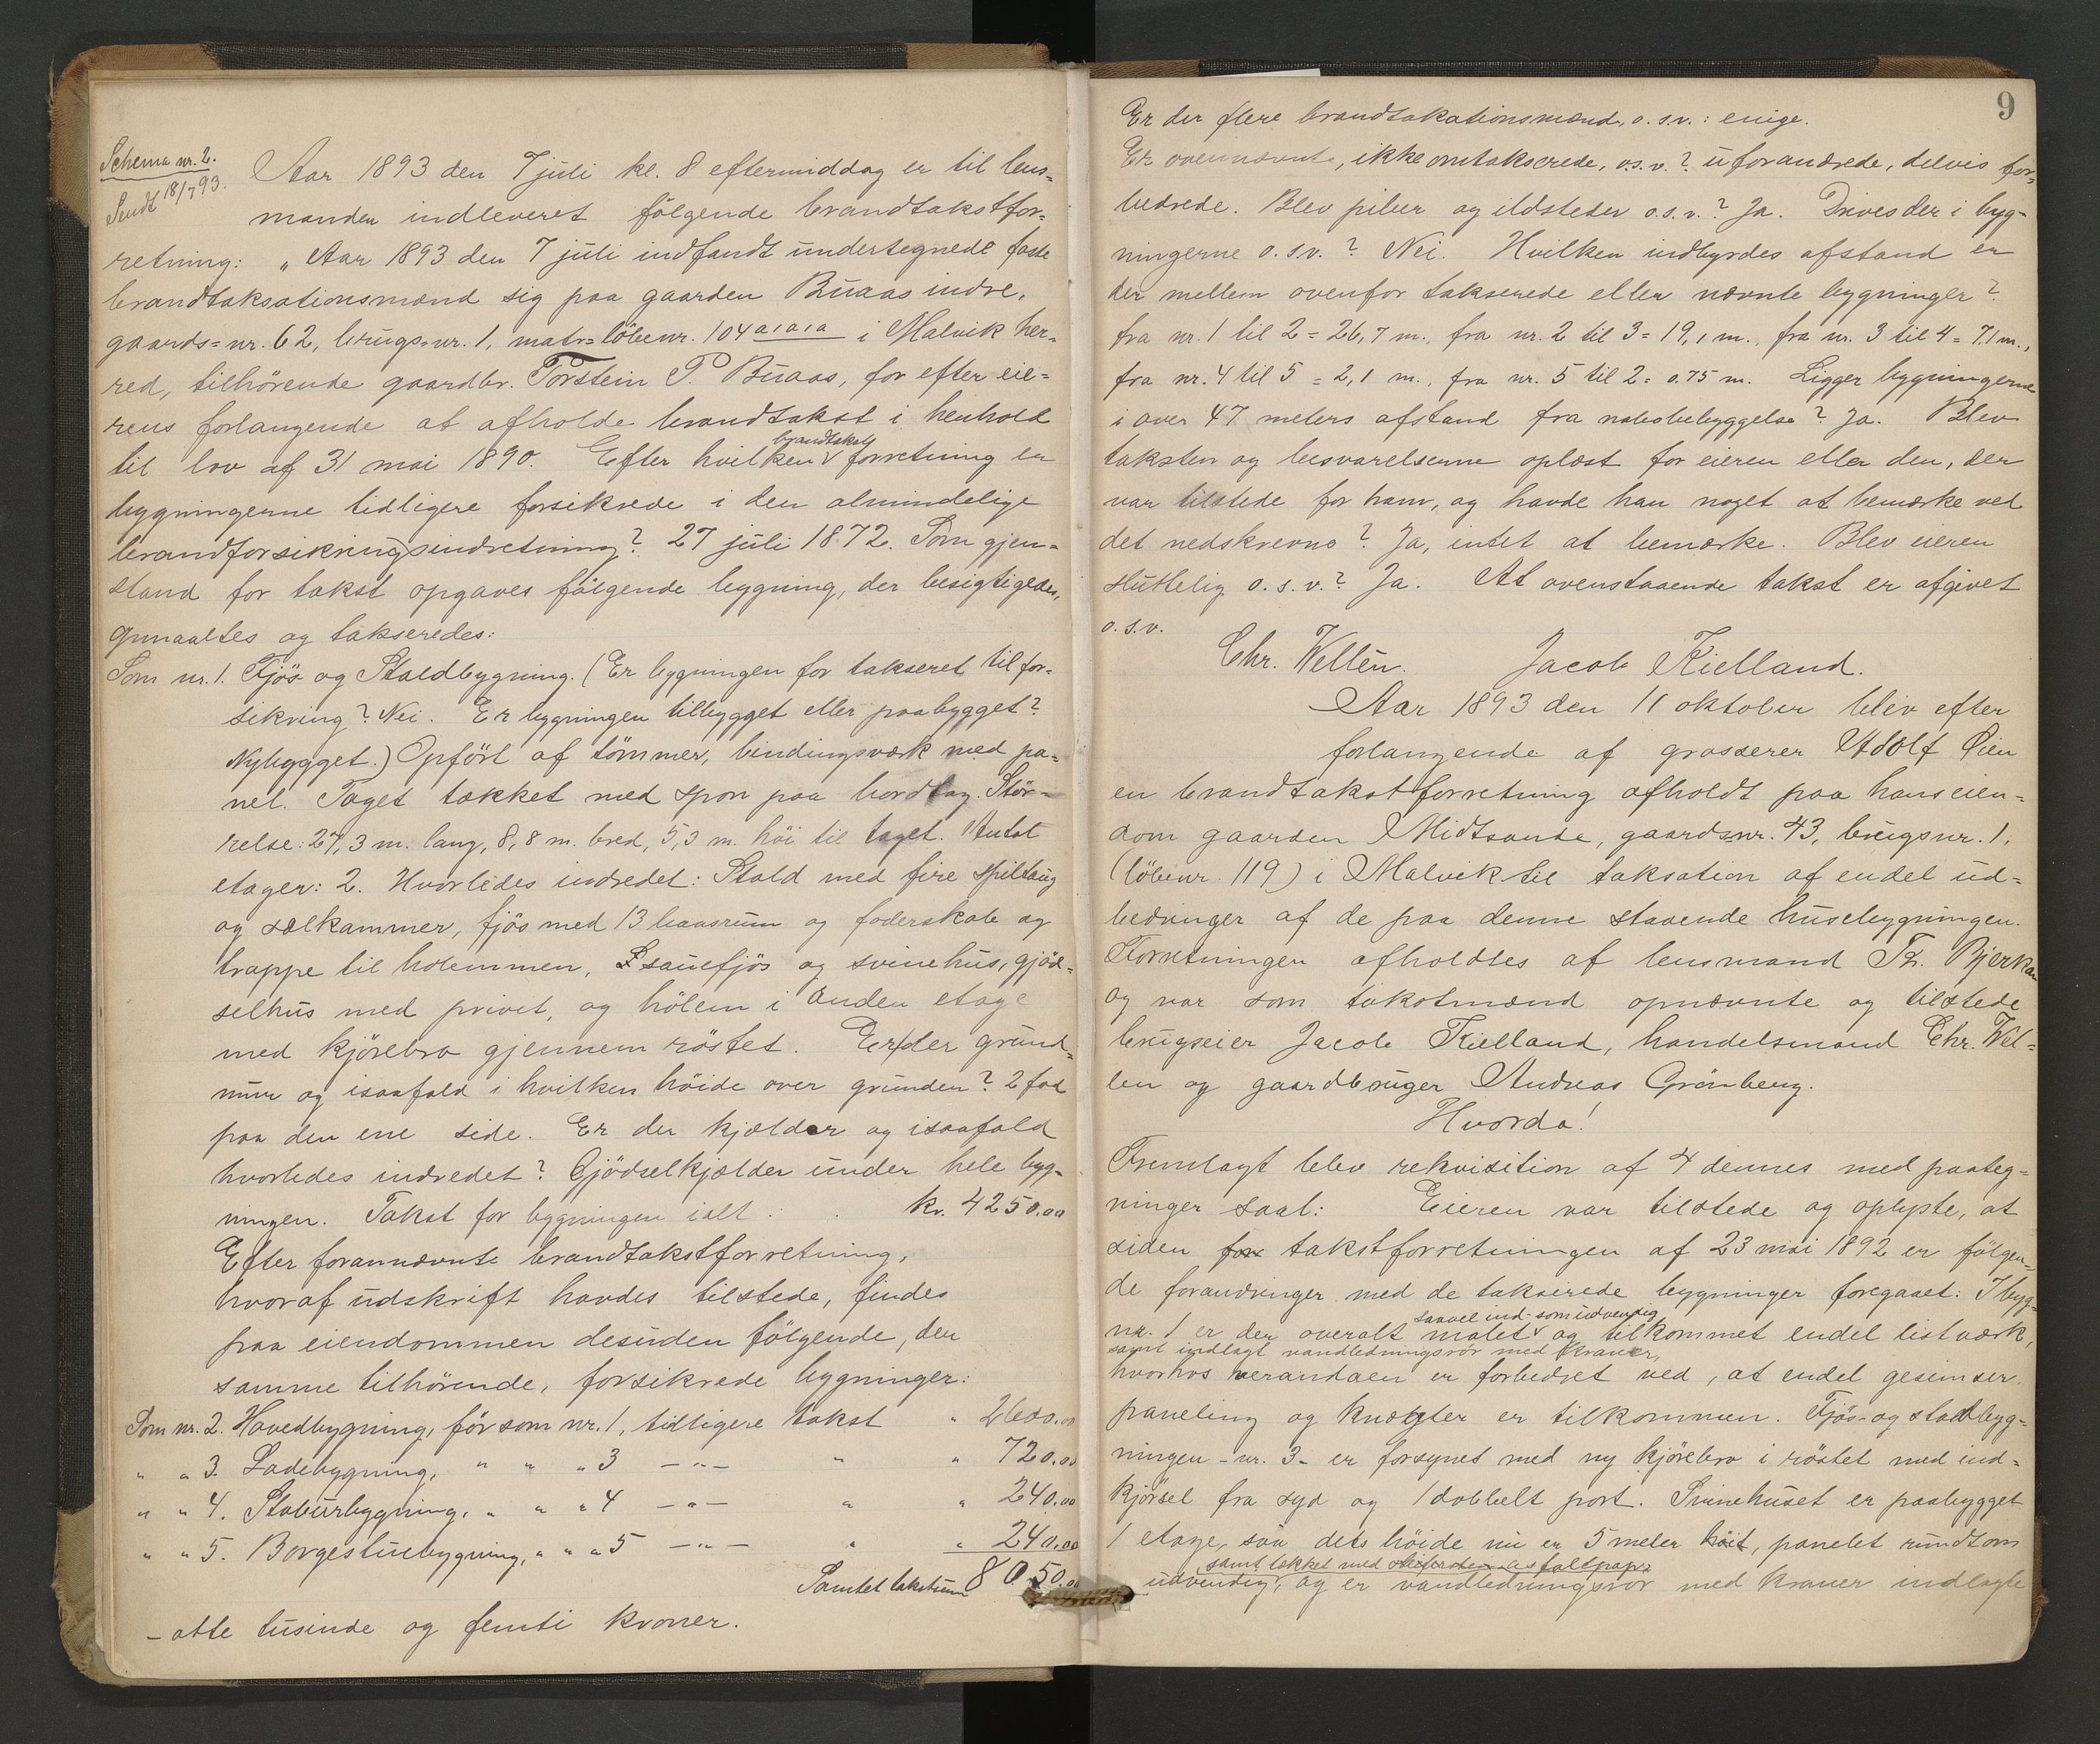 Schema nr. 2.
Sendt 18/7 93.
Aar 1893 den 7 juli kl. 8 eftermiddag er til lens=
manden indleveret følgende brandtakstfor=
retning: „Aar 1893 den 7 juli indfandt undertegnede faste
brandtaksationsmænd sig paa gaarden Buaas indre,
gaards=nr. 62, brugs=nr. 1, matr=löbenr. 104 a,a,a i Malvik her=
red, tilhörende gaardbr. Torstein P. Buaas, for efter eie=
rens forlangende at afholde brandtakst i henhold
til lov af 31 mai 1890. Efter hvilken brandtakst forretning er
bygningerne tidligere forsikrede i den almindelige
brandforsikringsindretning? 27 juli 1872. Som gjen=
stand for takst opgaves følgende bygning, der besigtigedes,
opmaaltes og takseredes:
Som nr. 1. Fjös og Staldbygning. (Er bygningen för takseret til for=
sikring? Nei. Er bygningen tilbygget eller paabygget?
Nybygget.) Opfört af tömmer, bindingsværk med pa=
nel. Taget tækket med spon paa bordtag. Stör=
relse: 27,3 m. lang, 8,8 m. bred, 5,3 m. höi til taget. Antal
etager: 2. Hvorledes indredet: Stald med fire spiltaug
og sælkammer, fjös med 13 baasrum og foderskabe og
trappe til holemmen, sauefjös og svinehus, gjöd=
selhus med privet, og hölem i anden etage
med kjörebro gjennem röstet. Er der grund=
mur og isaafald i hvilken höide over grunden? 2 fod
paa den ene side. Er der kjælder og isaafald
hvorledes indredet? Gjödselkjælder under hele byg=
ningen. Takst for bygningen ialt . . kr. 4250.00
Efter forannævnte brandtakstforretning,
hvoraf udskrift havdes tilstede, findes
paa eiendommen desuden følgende, den
samme tilhörende, forsikrede bygninger:
Som nr. 2. Hovedbygning, för som nr. 1, tidligere takst " 2600.00
" " 3. Ladebygning, " " " 3 — " — " " 720.00
" " 4. Stabursbygning, " " " 4 — " — " " 240.00
" " 5. Borgestuebygning, " " " 5 — " — " " 240.00
Samlet takstsum 8050.00
– otte tusinde og femti kroner.
9
Er der flere brandtaksationsmænd, o.s.v.: enige.
Er ovennævnte, ikke omtakserede, o.s.v.? uforandrede, delvis for=
bedrede. Blev piber og ildsteder o.s.v.? Ja. Drives der i byg-
ningerne o.s.v.? Nei. Hvilken indbyrdes afstand er
der mellem ovenfor takserede eller nævnte bygninger?
fra nr. 1 til 2 = 26,7 m., fra nr. 2 til 3 = 19,1 m., fra nr. 3 til 4 = 7,1 m.,
fra nr. 4 til 5 = 2,1 m., fra nr. 5 til 2 = 0.75 m. Ligger bygningerne
i over 47 meters afstand fra nabobebyggelse? Ja. Blev
taksten og besvarelserne oplæst for eieren eller den, der
var tilstede for ham, og havde han noget at bemærke ved
det nedskrevne? Ja, intet at bemærke. Blev eieren
sluttelig o.s.v.? Ja. At ovenstaaende takst er afgivet
o.s.v.
Chr. Wellén. Jacob Kielland.
Aar 1893 den 11 oktober blev efter
forlangende af grosserer Adolf Öien
en brandtakstforretning afholdt paa hans eien=
dom gaarden Midtsande, gaards=nr. 43, brugsnr. 1,
(löbenr. 119) i Malvik til taksation af endel ud=
bedringer af de paa denne staaende husebygningen.
Forretningen afholdtes af lensmand Th. Bjerkan
og var som takstmænd opnævnte og tilstede
brugseier Jacob Kielland, handelsmand Chr. Wel=
len og gaardbruger Andreas Grönberg.
Hvorda!
Fremlagt blev rekvisition af 4 dennes med paateg=
ninger saal: Eieren var tilstede og oplyste, at
siden takstforretningen af 23 mai 1892 er følgen=
de forandringer med de takserede bygninger foregaaet: I byg=
saavel ind- som udvendig
nr. 1 er der overalt malet og tilkommet endel listværk,
samt indlagt vandledningsrör med kraner,
hvorhos verandaen er forbedret ved, at endel gesimser,
paneling og knægter er tilkommen. Fjös- og staldbyg=
ningen – nr. 3 – er forsynet med ny kjörebro i röstet med ind=
kjörsel fra syd og 1 dobbelt port. Svinehuset er paabygget
1 etage, saa dets höide nu er 5 meter höit, panelet rundtom
samt tækket med asfaltpapp
udvendig, og er vandledningsrör med kraner indlagte